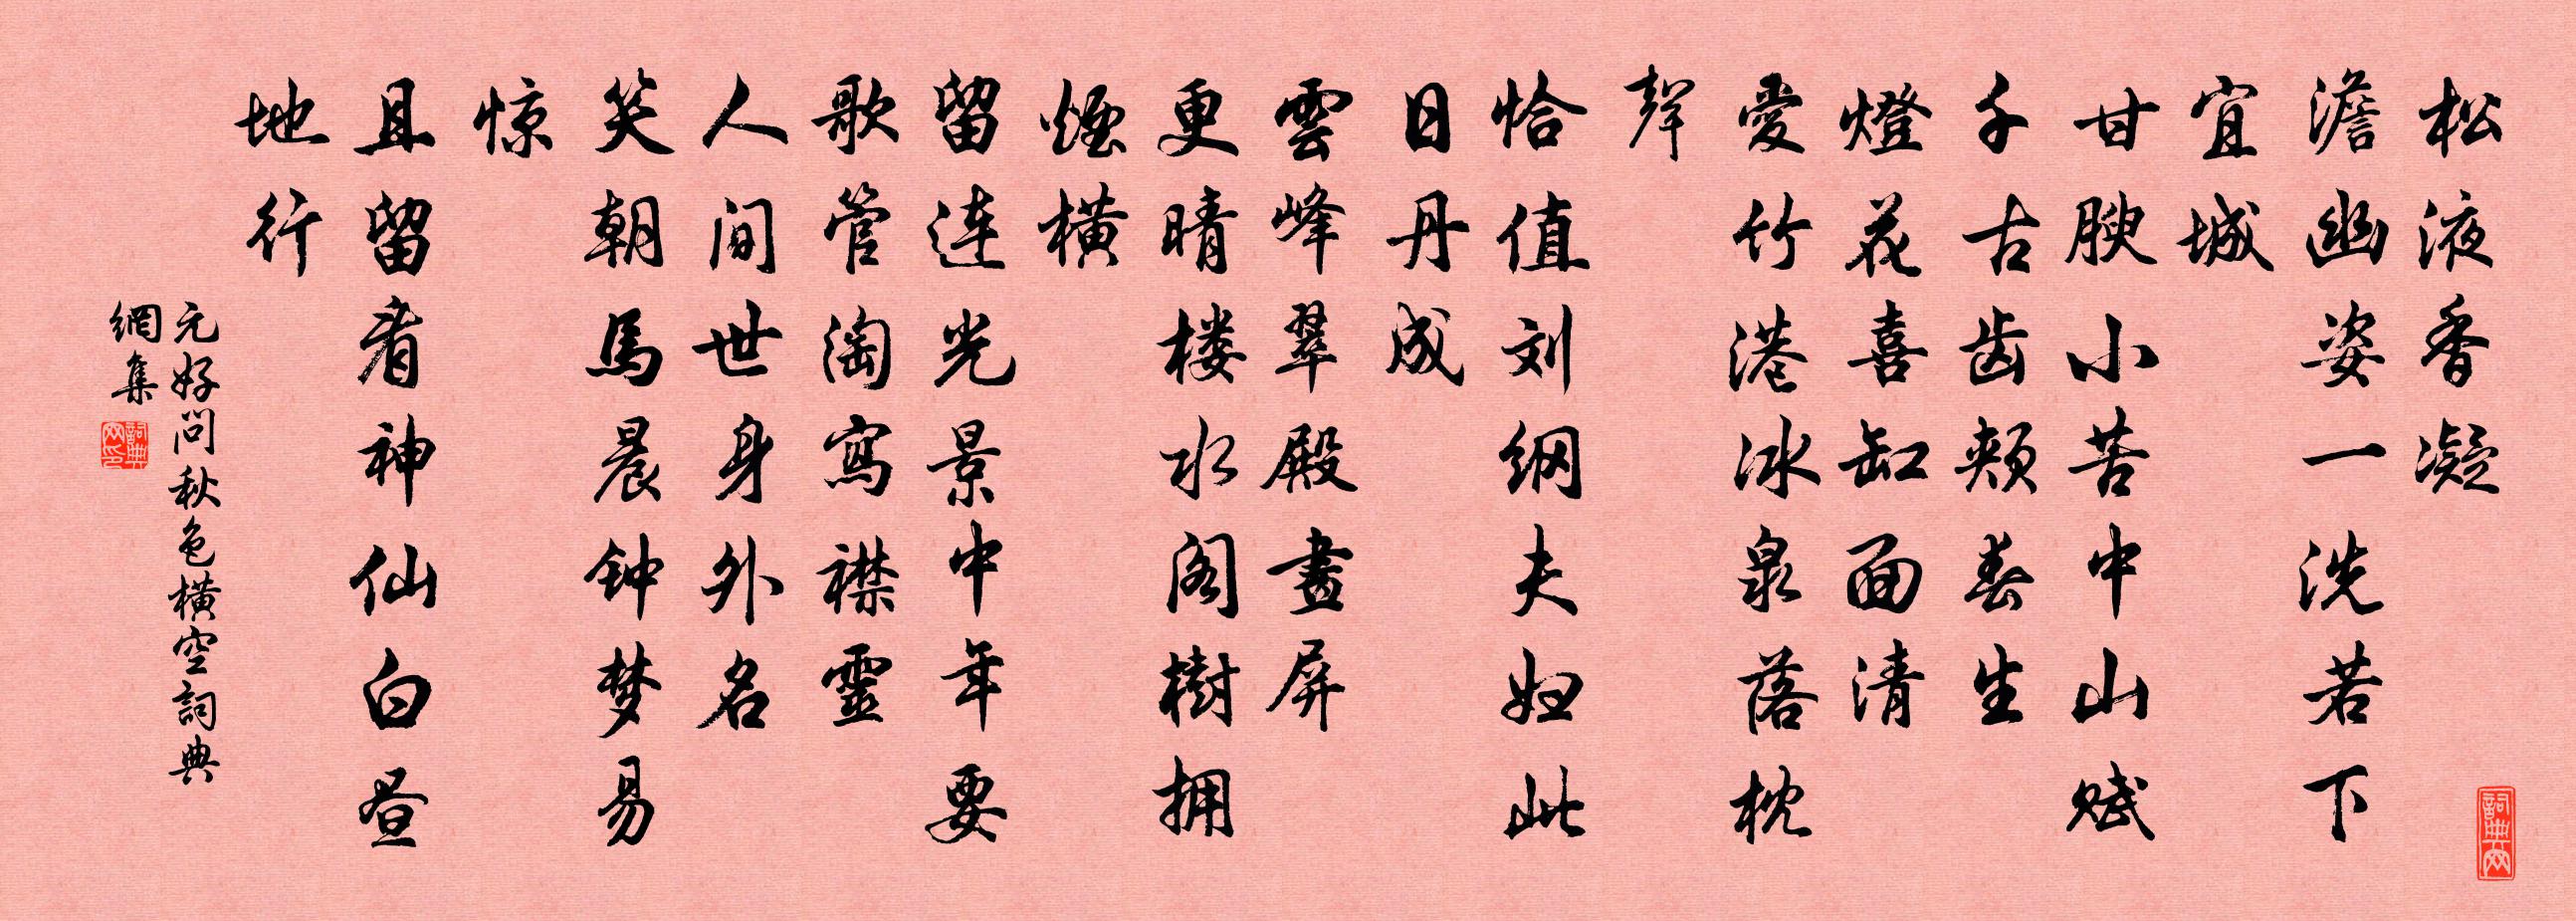 松液香凝
澹幽姿一洗若下
宜城
甘腴小苦中山赋
千古齿颊春生
燈花喜缸面清
愛竹港冰泉落枕
聲
恰值刘纲夫妇此
日丹成
雲峰翠殿畫屏
更晴楼水阁樹拥
煙横
留连光景中年要
歌管淘寫襟靈
人间世身外名
笑朝馬晨钟梦易
惊
且留看神仙白昼
地行
元好问秋色横空詞典
網集
詞典網